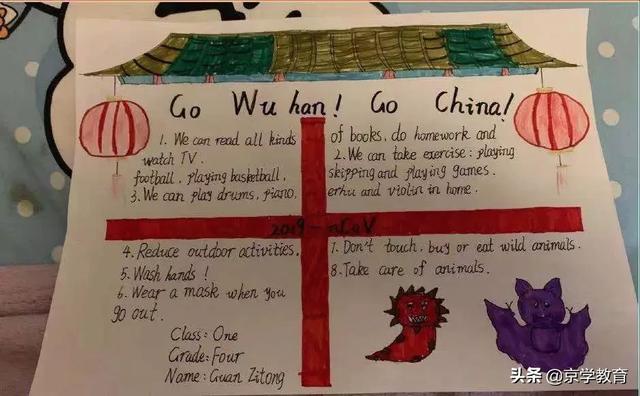 Go Wuhan! Go China!
1. We can read all kinds of books, do homework and
watch TV. 2. We can take exercise: playing
football, playing basketball, skipping and playing games.
3. We can play drums, piano, erhu and violin in home.
2019-nCoV
4. Reduce outdoor activities.
5. Wash hands!
6. Wear a mask when you
go out.
7. Don't touch, buy or eat wild animals.
8. Take care of animals.
Class: One
Grade: Four
Name: Guan Zitong
头条 @京学教育